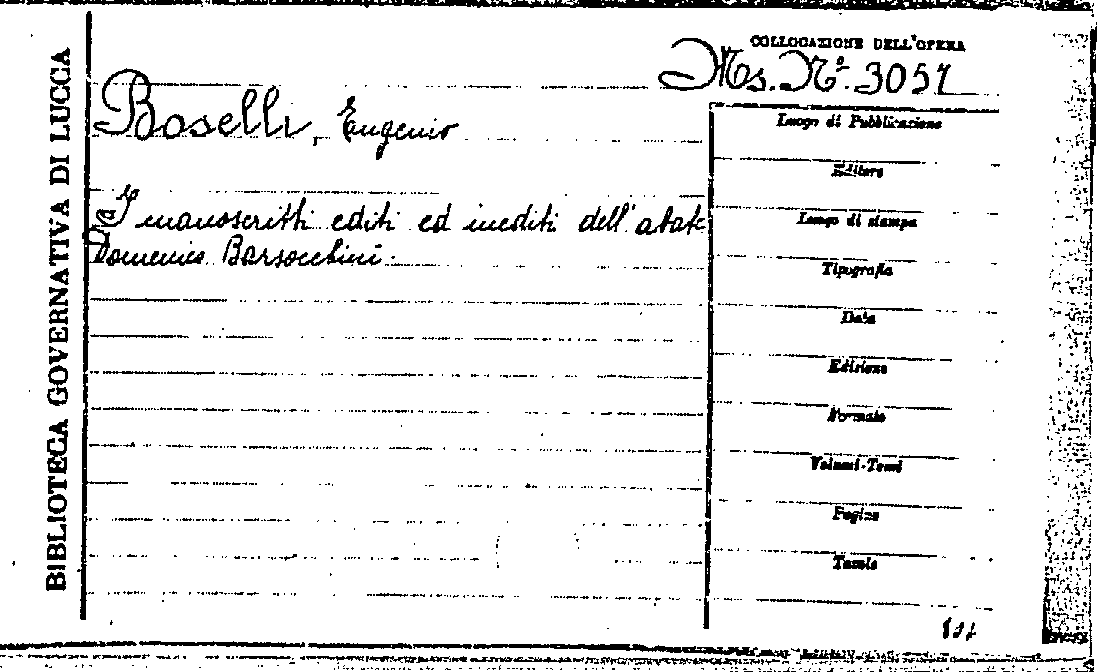 BIBLIOTECA GOVERNATIVA DI LUCCA
COLLOCAZIONE DELL'OPERA
Ms. N°. 3057
Boselli, Eugenio
I manoscritti editi ed inediti dell'abate
Domenico Barsocchini.
Luogo di Pubblicazione
Editore
Luogo di stampa
Tipografia
Data
Edizione
Formato
Volumi-Tomi
Pagine
Tavole